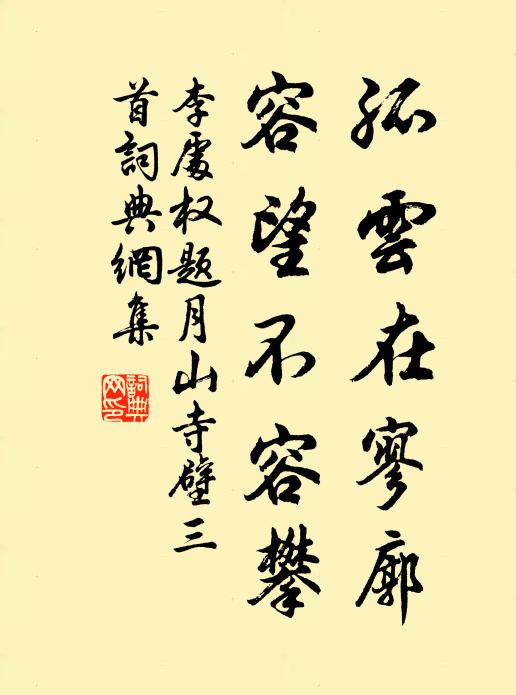 孤雲在寥廓
容望不容攀
李處权题月山寺壁三
首詞典網集
詞典网印